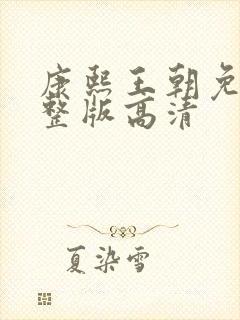 康熙王朝免
整版高清
夏染雪